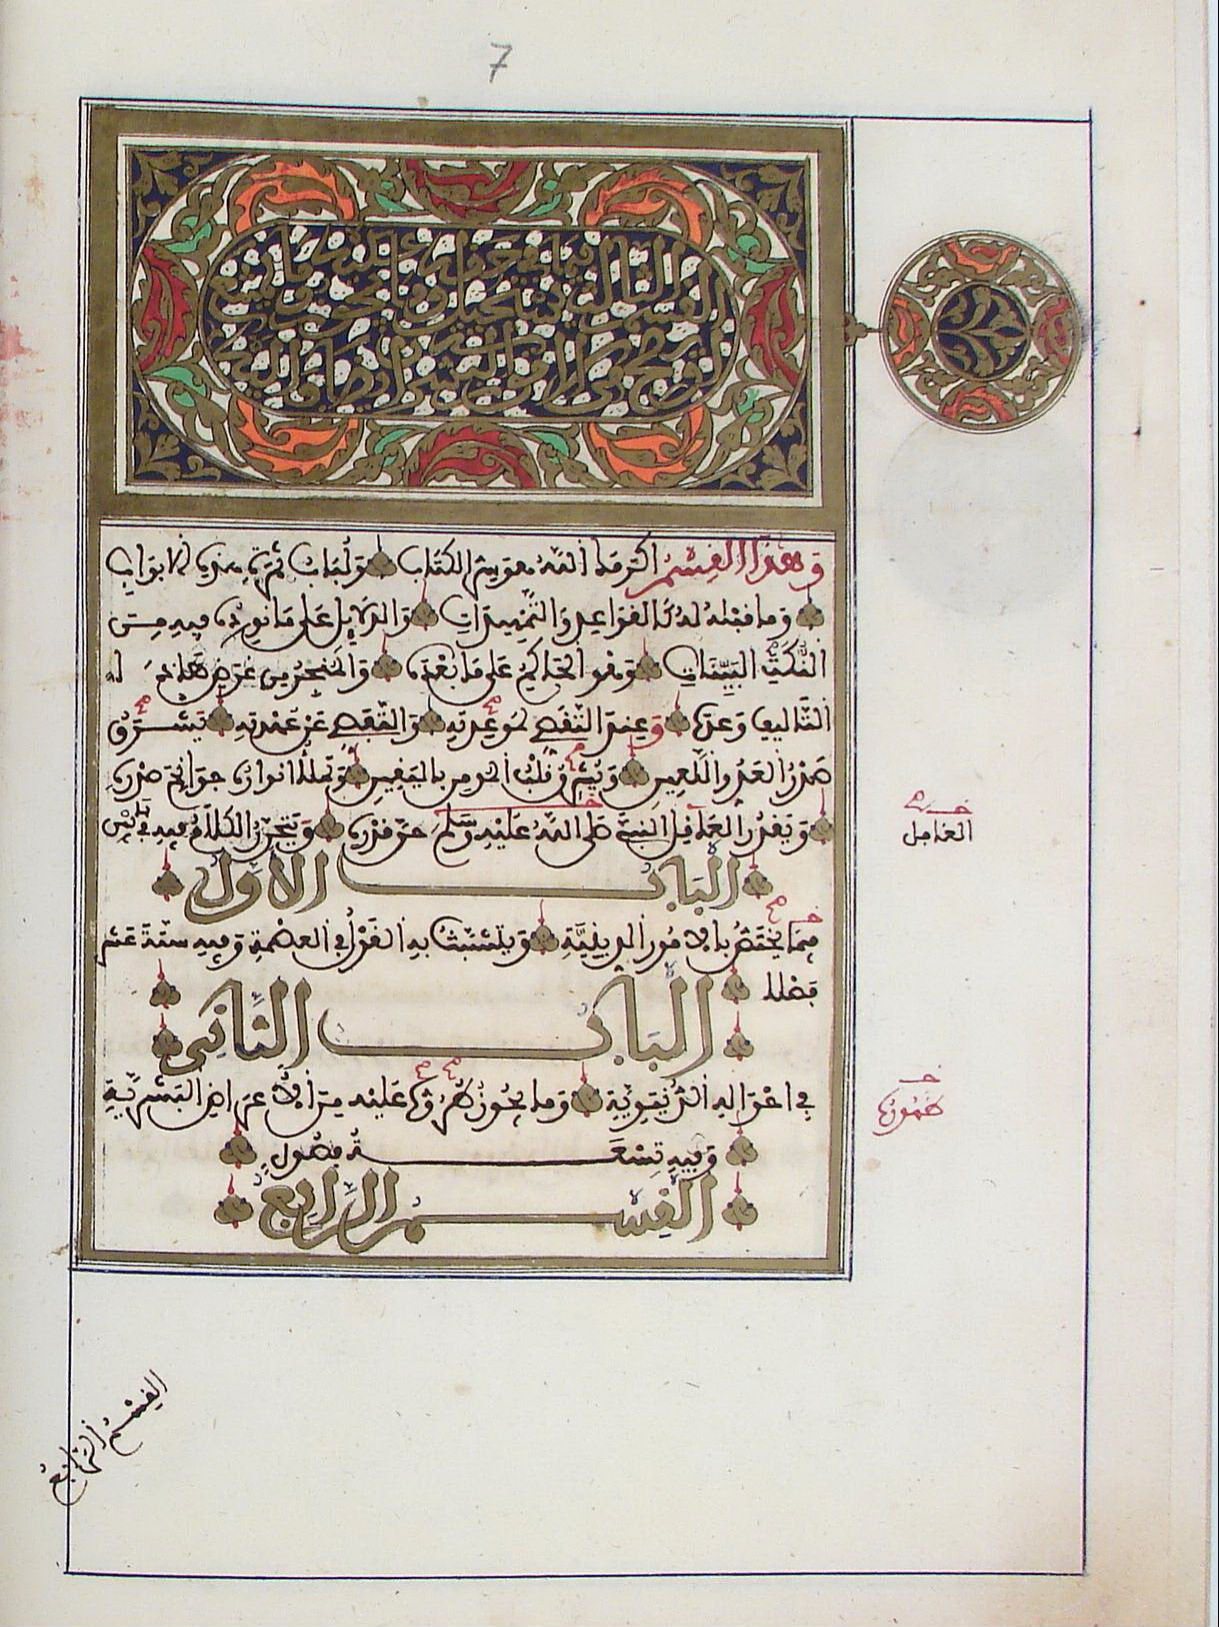 7
القسم الثالث فيما يستحيل في حقه وما يجوز عليه وما يمتنع
ويصح من الأمور البشرية أن يضاف إليه
وهذا القسم أكرمك الله هو سر الكتاب ولباب ثمرة هذه الابواب
وما قبله له كالقواعد والتمهيدات والدلايل على ما نورده فيه من
النكت البينات وهو الحاكم على ما بعده والمنجز من غرض هذا
التاليف وعده وعند التقصي لموعدته والتقصي عن عهدته يشرق
صدر العدو اللعين ويشرق قلب المومن باليقين وتملأ انواره جوانح صدره
ويقدر العاقل النبي صلى الله عليه وسلم حق قدره ويتحرر الكلام فيه في بابين
الباب الأول
فيما يختص بالامور الدينية ويتشبث به القول في العصمة وفيه ستة عشر
فصلا
الباب الثاني
في احواله الدنيوية وما يجوز طروه عليه من الاعراض البشرية
وفيه تسعة فصول
القسم الرابع
العاقل
القسم الرابع